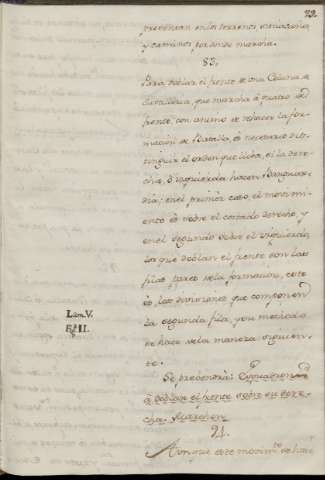 presentan en los terrenos estrechos
y caminos por donde marcha.
83.
Para doblar el frente de una Columna de
Cavalleria, que marcha à quatro de
frente, con animo de rehacer la for-
macion de Batalla, es necesario dis-
tinguir el orden que lleba, si la dere-
cha, ò izquierda hacen Banguar-
dia; en el primer caso, el movimi-
ento es sobre el costado derecho, y
en el segundo sobre el izquierdo
los que doblan el frente son las
filas pares de la formacion, esto
es, las divisiones que componen
la segunda fila, y su metodo
se hace de la manera siguien-
te.
Lám. V.
Fig. II.
Se prevendrá: Esquadron
à doblar el frente sobre su dere-
cha. Marchen.
Aunque este movimto. se hace